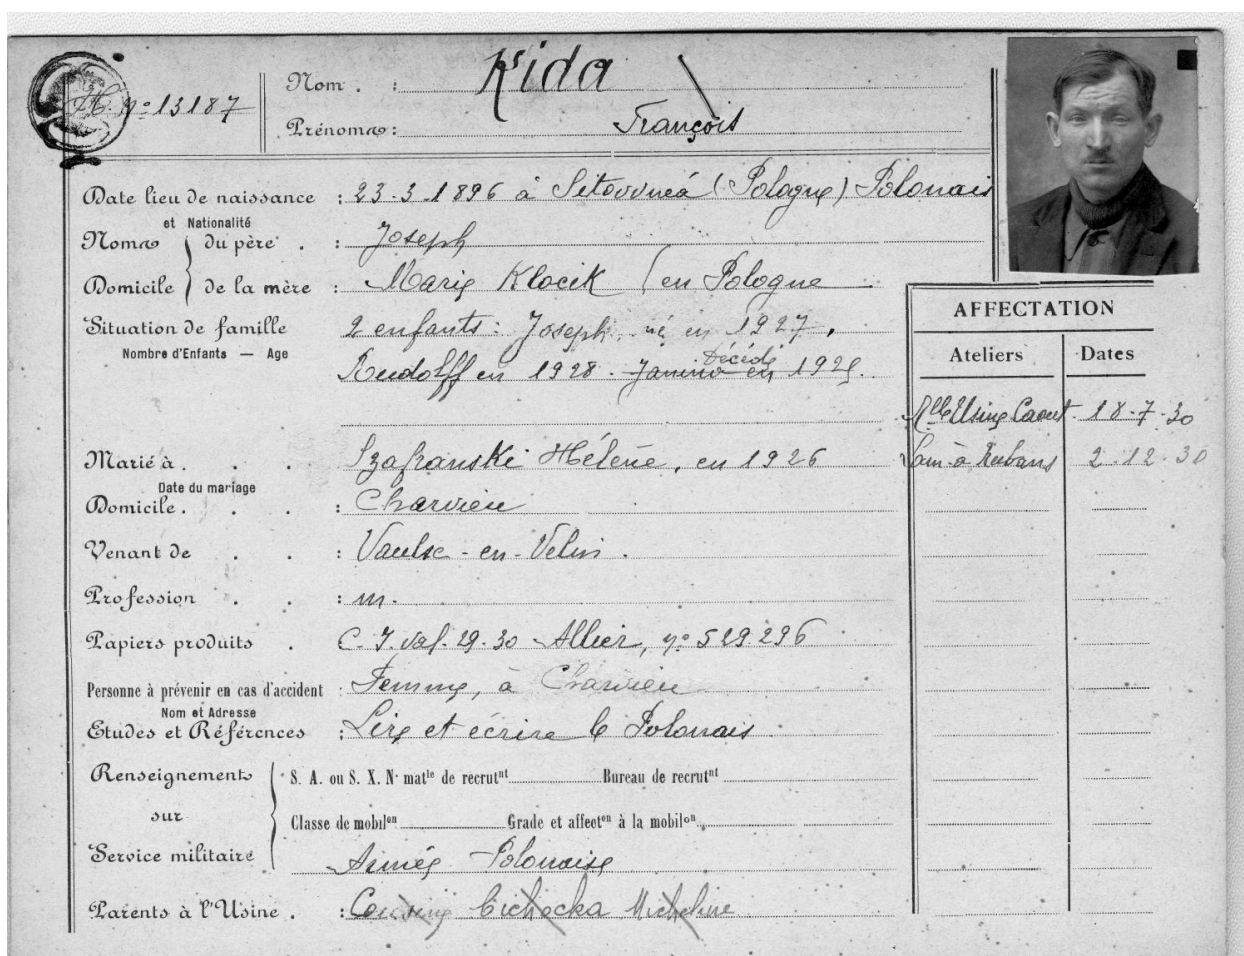 H. nº 13187
Nom . : Kida
Prénoms : François
Date lieu de naissance : 23-3-1896 à Sitowneá (Pologne) Polonais
et Nationalité
Noms du père . : Joseph
Domicile de la mère : Marie Klocik (en Pologne
Situation de famille 2 enfants: Joseph, né en 1927,
Nombre d'Enfants — Age
décédé
Rudolff en 1928. Janina en 1929.
Marié à . . . : Szafranski Hélène, en 1926
Date du mariage
Domicile . . . : Charvieu
Venant de . . : Vaulx-en-Velin.
Profession . . : m.
Papiers produits . C.I. val. 29-30 Allier, nº 529.296
Personne à prévenir en cas d'accident : Femme, à Charvieu
Nom et Adresse
Etudes et Références : Lire et écrire le Polonais
Renseignements sur Service militaire
S. A. ou S. X. Nº matle de recrutnt Bureau de recrutnt
Classe de mobilon Grade et affecton à la mobilon
Armée Polonaise
Parents à l'Usine . : Cousine Cichocka Micheline
AFFECTATION
Ateliers Dates
Usine Caout. 18-7-30
Lam. à Rubans 2-12-30